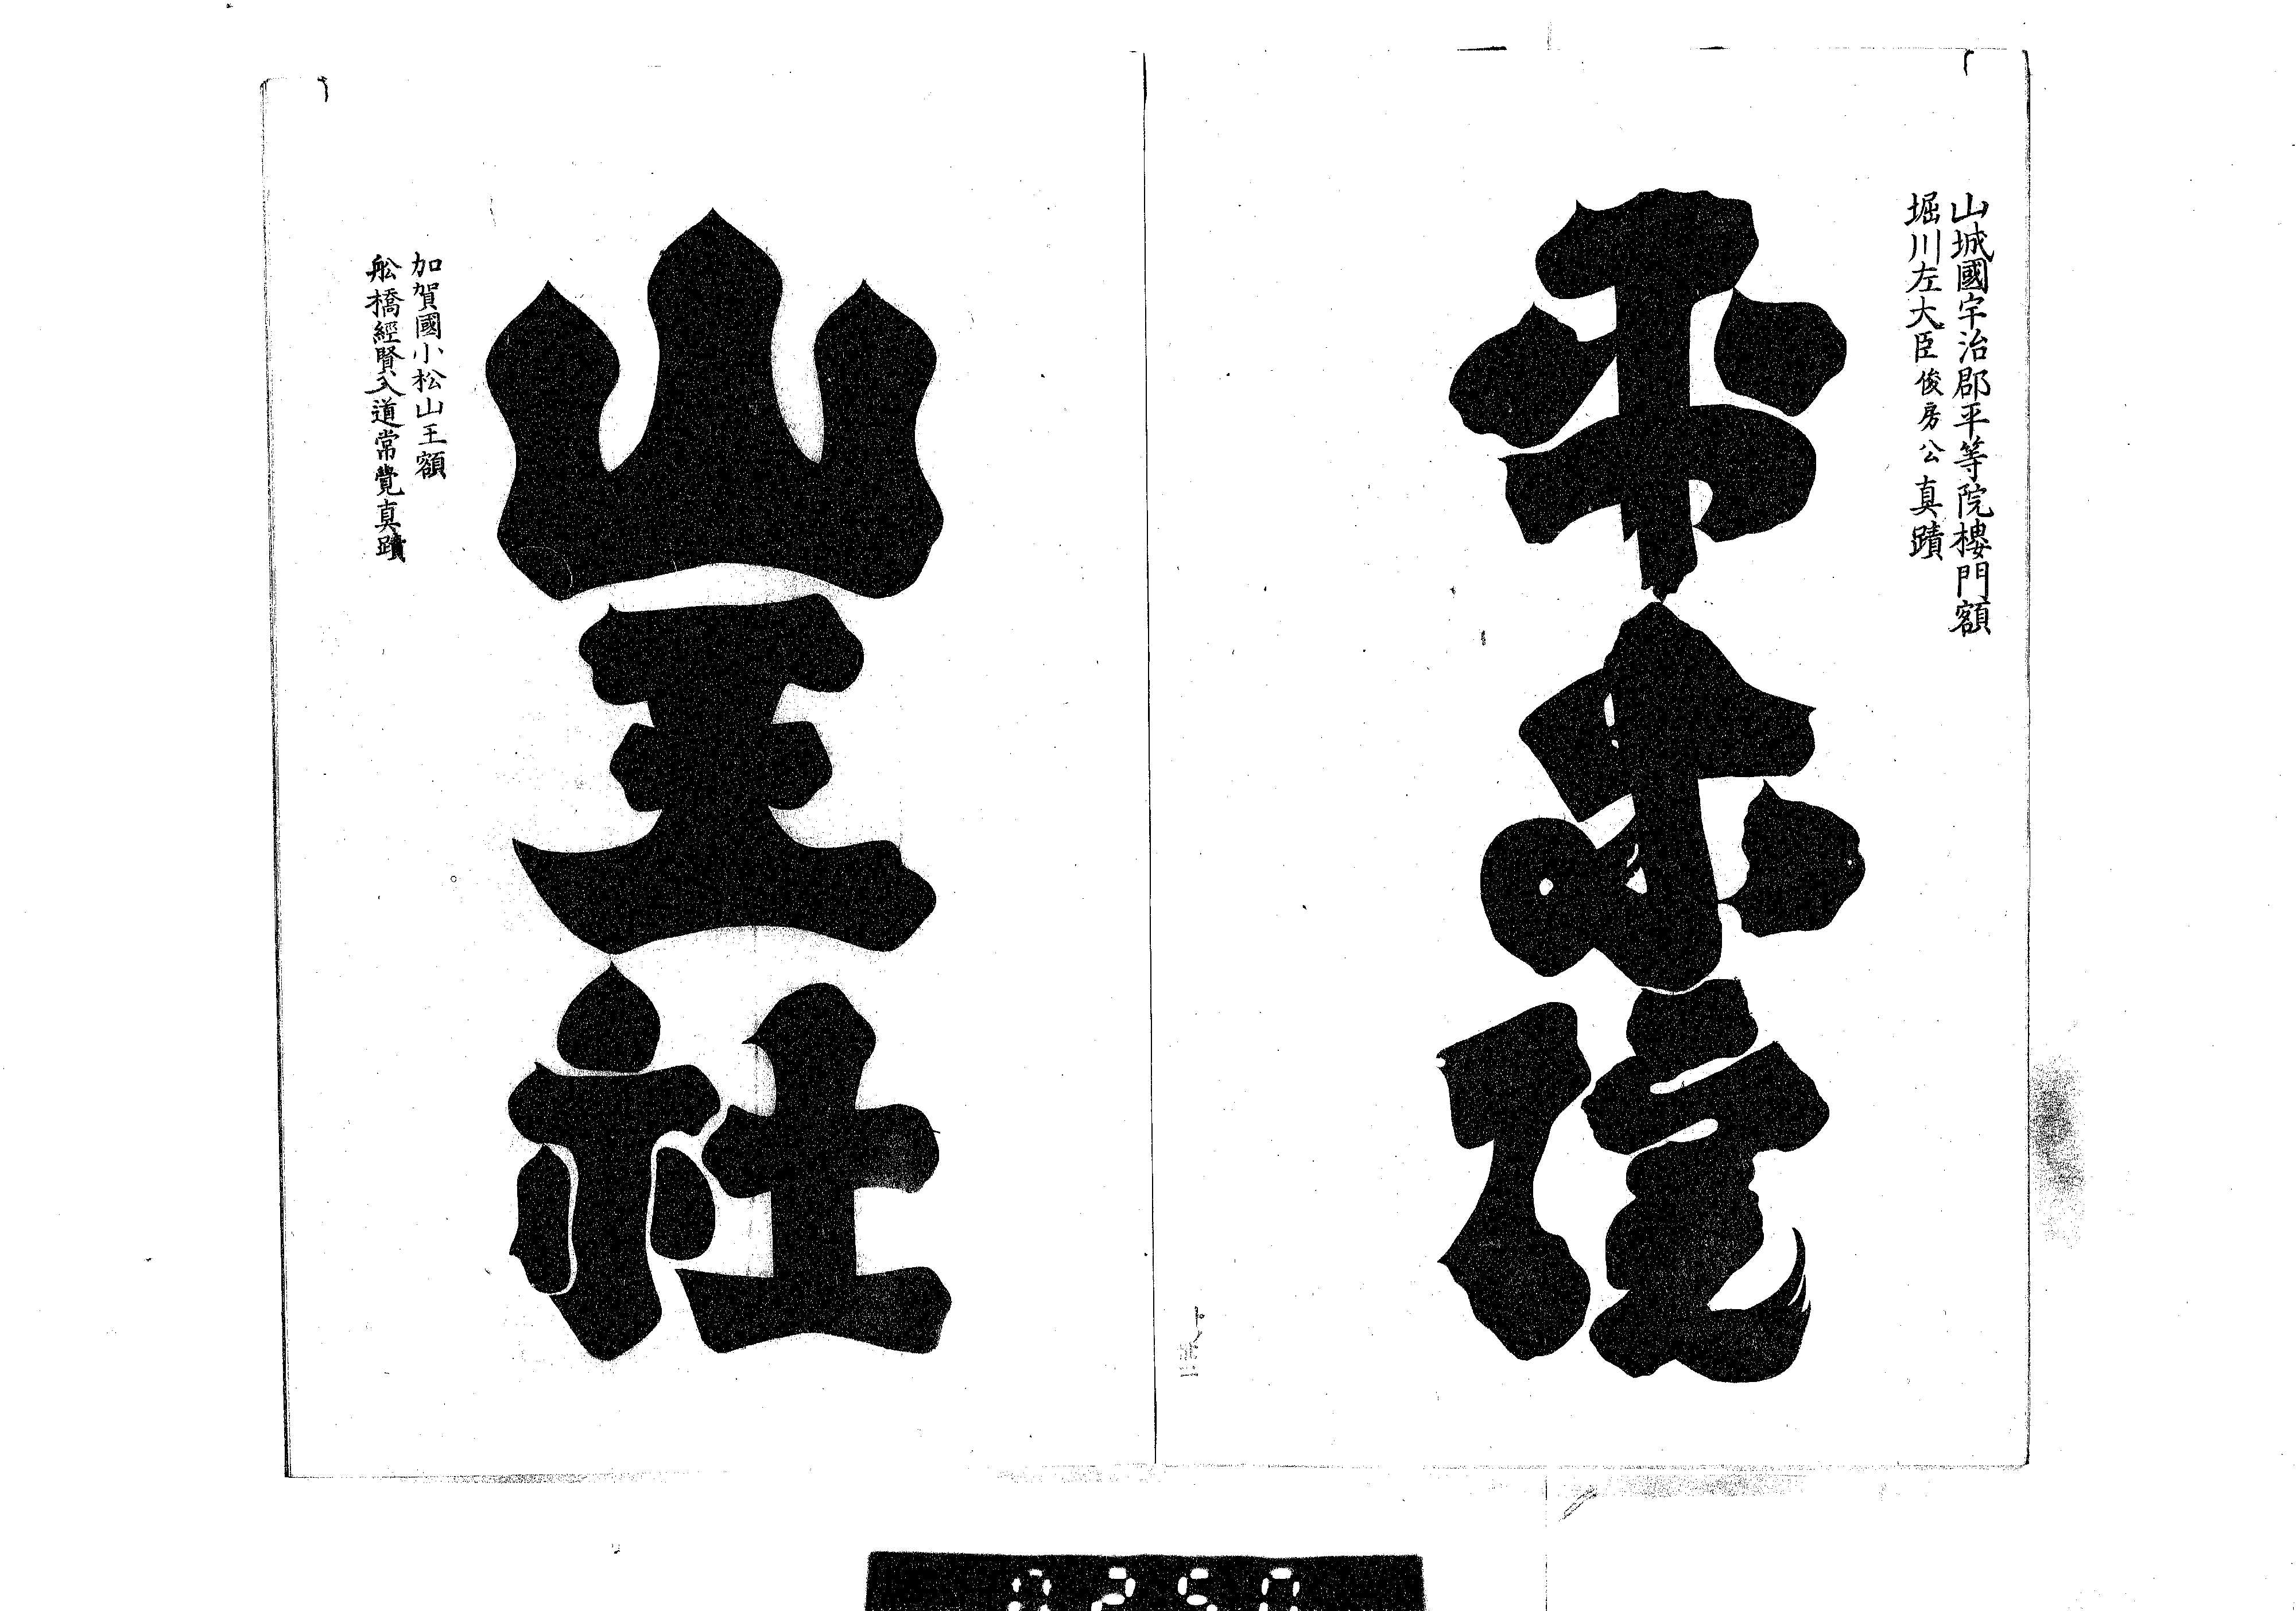 山城國宇治郡平等院樓門額
堀川左大臣俊房公真蹟
平等院
加賀國小松山王額
舩橋經賢入道常覺真蹟
山王社